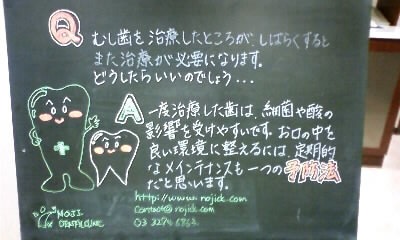 Q むし歯を治療したところが、しばらくすると
また治療が必要になります。
どうしたらいいのでしょう・・・
A 一度治療した歯は、細菌や酸の
影響を受けやすいです。お口の中を
良い環境に整えるには、定期的
なメインテナンスも一つの予防法
だと思います。
http://www.nojidc.com
contact@nojidc.com
MOJI
DENTAL CLINIC